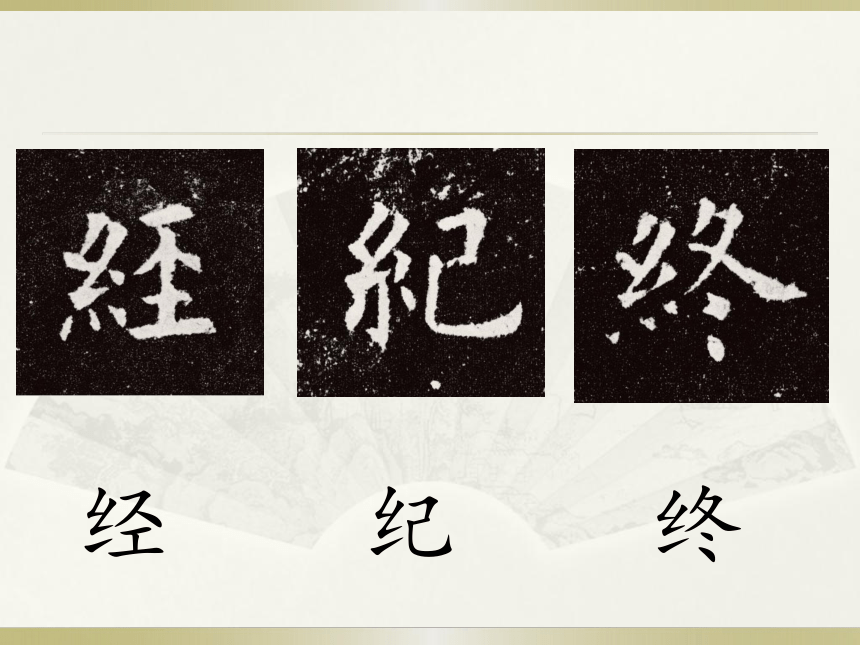 經 紀 終
经 纪 终